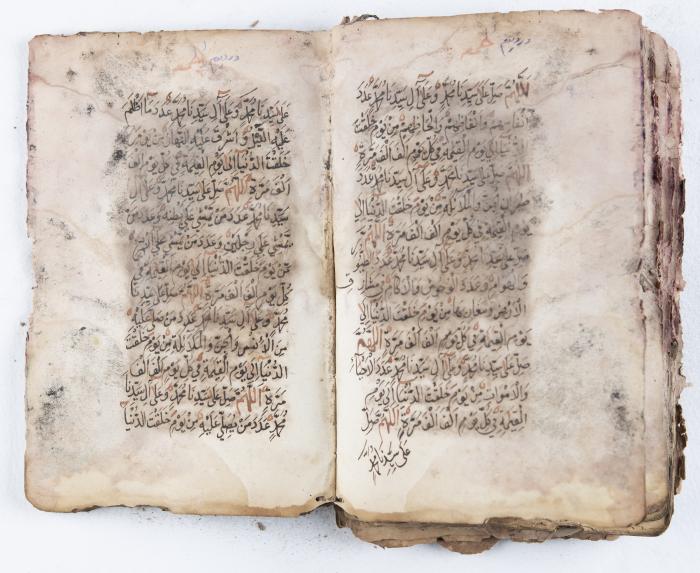 اللهم صل على سيدنا محمد وعلى آل سيدنا محمد عدد
انفاسهم والفاظهم والحاظهم من يوم خلقت
الدنيا الى يوم القيمة في كل يوم الف الف مرة
اللهم صل على سيدنا محمد وعلى آل سيدنا محمد عدد
طيران الجن والملائكة من يوم خلقت الدنيا الى
يوم القيمة في كل يوم الف الف مرة اللهم
صل على سيدنا محمد وعلى آل سيدنا محمد عدد الطيور
والهوام وعدد الوحوش والآكام في مشارق
الارض ومغاربها من يوم خلقت الدنيا الى
يوم القيمة في كل يوم الف الف مرة اللهم
صل على سيدنا محمد وعلى آل سيدنا محمد عدد الاحياء
والاموات من يوم خلقت الدنيا الى يوم
القيمة في كل يوم الف الف مرة اللهم صل
على سيدنا محمد
على سيدنا محمد وعلى آل سيدنا محمد عدد ما اظلم
عليه الليل واشرق عليه النهار من يوم
خلقت الدنيا الى يوم القيمة في كل يوم الف
الف مرة اللهم صل على سيدنا محمد وعلى آل
سيدنا محمد عدد من يمشي على بطنه وعدد من
يمشي على رجلين وعدد من يمشي على اربع
من يوم خلقت الدنيا الى يوم القيمة في
كل يوم الف الف مرة اللهم صل على سيدنا
محمد وعلى آل سيدنا محمد عدد من صلى عليه
من الانس والجن والملائكة من يوم خلقت
الدنيا الى يوم القيمة في كل يوم الف الف
مرة اللهم صل على سيدنا محمد وعلى آل سيدنا
محمد عدد من يصلي عليه من يوم خلقت الدنيا